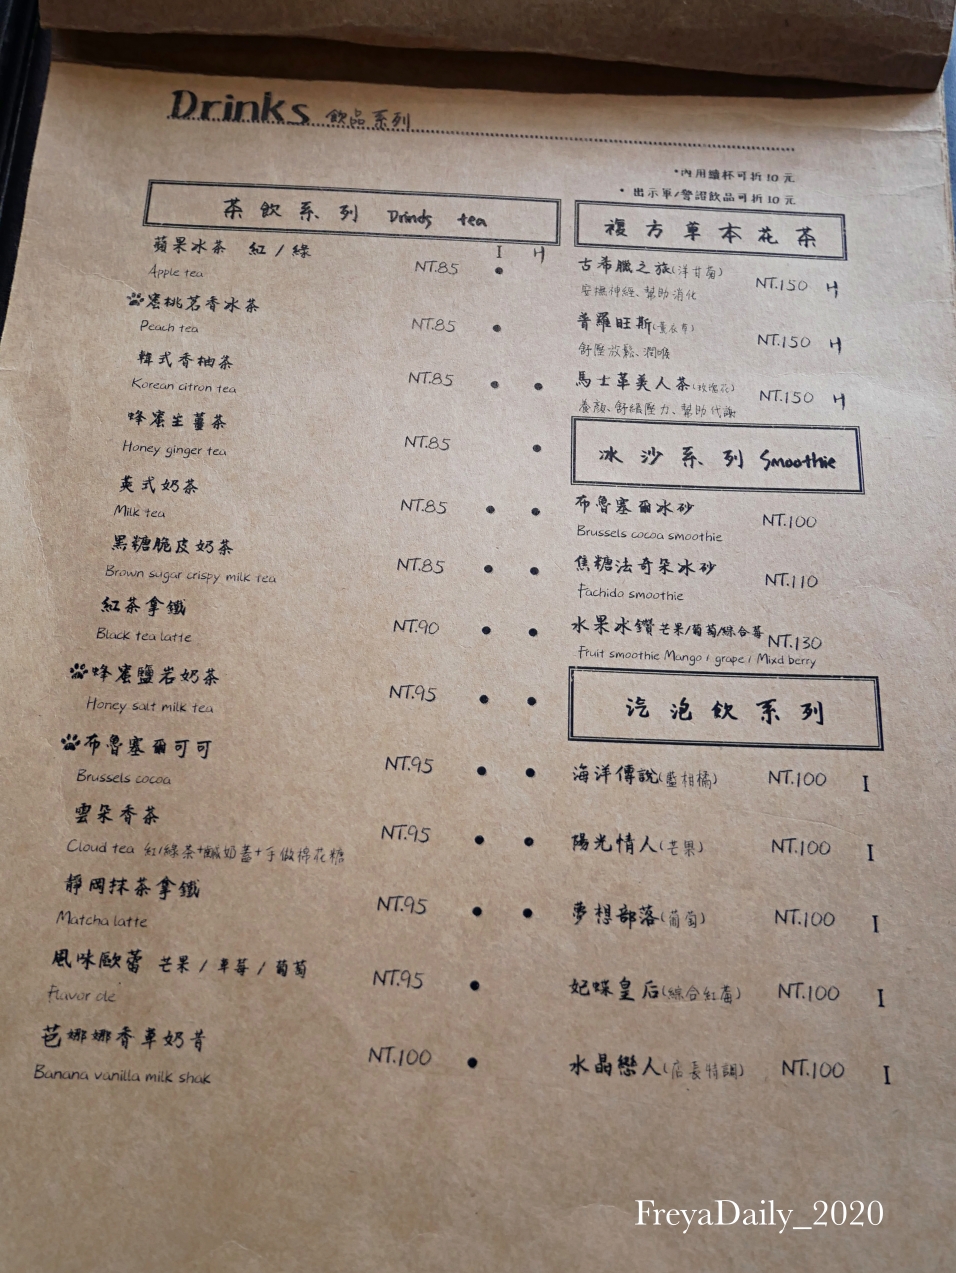 Drinks 飲品系列
•內用續杯可折10元
• 出示軍/警證飲品可折10元
茶飲系列 Drinds tea
I H
蘋果冰茶 紅/綠
Apple tea
NT.85 ●
蜜桃茗香冰茶
Peach tea
NT.85 ●
韓式香柚茶
Korean citron tea
NT.85 ● ●
蜂蜜生薑茶
Honey ginger tea
NT.85 ●
英式奶茶
Milk tea
NT.85 ● ●
黑糖脆皮奶茶
Brown sugar crispy milk tea
NT.85 ● ●
紅茶拿鐵
Black tea latte
NT.90 ● ●
蜂蜜鹽岩奶茶
Honey salt milk tea
NT.95 ● ●
布魯塞爾可可
Brussels cocoa
NT.95 ● ●
雲朵香茶
Cloud tea 紅/綠茶+鹹奶蓋+手做棉花糖
NT.95 ● ●
靜岡抹茶拿鐵
Matcha latte
NT.95 ● ●
風味歐蕾 芒果/草莓/葡萄
Flavor ole
NT.95 ●
芭娜娜香草奶昔
Banana vanilla milk shak
NT.100 ●
複方草本花茶
古希臘之旅(洋甘菊) NT.150 H
安撫神經、幫助消化
普羅旺斯(薰衣草) NT.150 H
舒壓放鬆、潤喉
馬士革美人茶(玫瑰花) NT.150 H
養顏、舒緩壓力、幫助代謝
冰沙系列 Smoothie
布魯塞爾冰砂 NT.100
Brussels cocoa smoothie
焦糖法奇朵冰砂 NT.110
Fachido smoothie
水果冰鑽芒果/葡萄/綜合莓 NT.130
Fruit smoothie Mango / grape / Mixd berry
汽泡飲系列
海洋傳說(藍柑橘) NT.100 I
陽光情人(芒果) NT.100 I
夢想部落(葡萄) NT.100 I
妃蝶皇后(綜合紅莓) NT.100 I
水晶戀人(店長特調) NT.100 I
FreyaDaily_2020